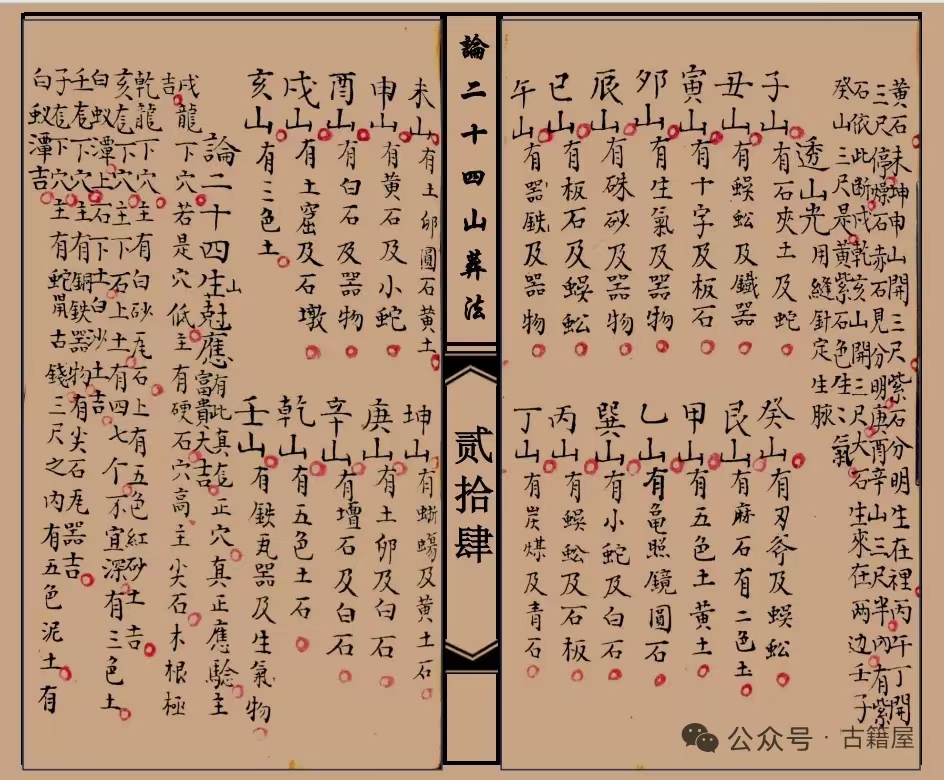 黄石未坤申山開三尺紫石分明生在裡丙午丁開
三尺停燥石赤石見分明庚酉辛山三尺半內有紫
石依此断戌乾亥山開三尺大石生來在两边壬子
癸山三尺是黄紫石色生氣
透山光用縫針定生脉
子山有石夾土及蛇
癸山有刃爷及蜈蚣
丑山有蜈蚣及鐡器
艮山有麻石有二色土
寅山有十字及板石
甲山有五色土黄土
夘山有生氣及器物
乙山有亀照鏡圓石
辰山有硃砂及器物
巽山有小蛇及白石
巳山有板石及蜈蚣
丙山有蜈蚣及石板
午山有器鉄及器物
丁山有炭煤及青石
論二十四山葬法
贰拾肆
未山有土卵圓石黄土
坤山有蜥蝪及黄土石
申山有黄石及小蛇
庚山有土卵及白石
酉山有白石及器物
辛山有壇石及白石
戌山有土窟及石墩
乾山有五色土石
亥山有三色土
壬山有鉄瓦器及生氣物
論二十四生山尅應富貴大吉有此真穴正穴真正應驗主
戌龍下穴若是穴低主有硬石穴高主尖石木根極
吉
乾龍下穴主有白砂瓦石上有五色紅砂土吉
亥龍下穴主下石上土有四七个不宜深有三色土
白蟻潭上石下土白沙土吉
壬龍下穴主有銅鉄器物有尖石瓦器吉
子龍下穴主有蛇古錢三尺之内有五色泥土有
白蟻潭吉
公众号·古籍屋